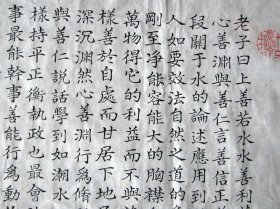 老子曰上善若水水善利
心善淵與善仁言善信正
段關于水的論述應用到
人如要效法自然之道的
剛至净能容能大的胸襟
萬物得它的利益而不與
樣善於自處而甘居下地
深沉淵然心善淵行爲脩
與善仁説話學到如潮水
樣持平正衡執政也最會
事最能幹事善能行爲動